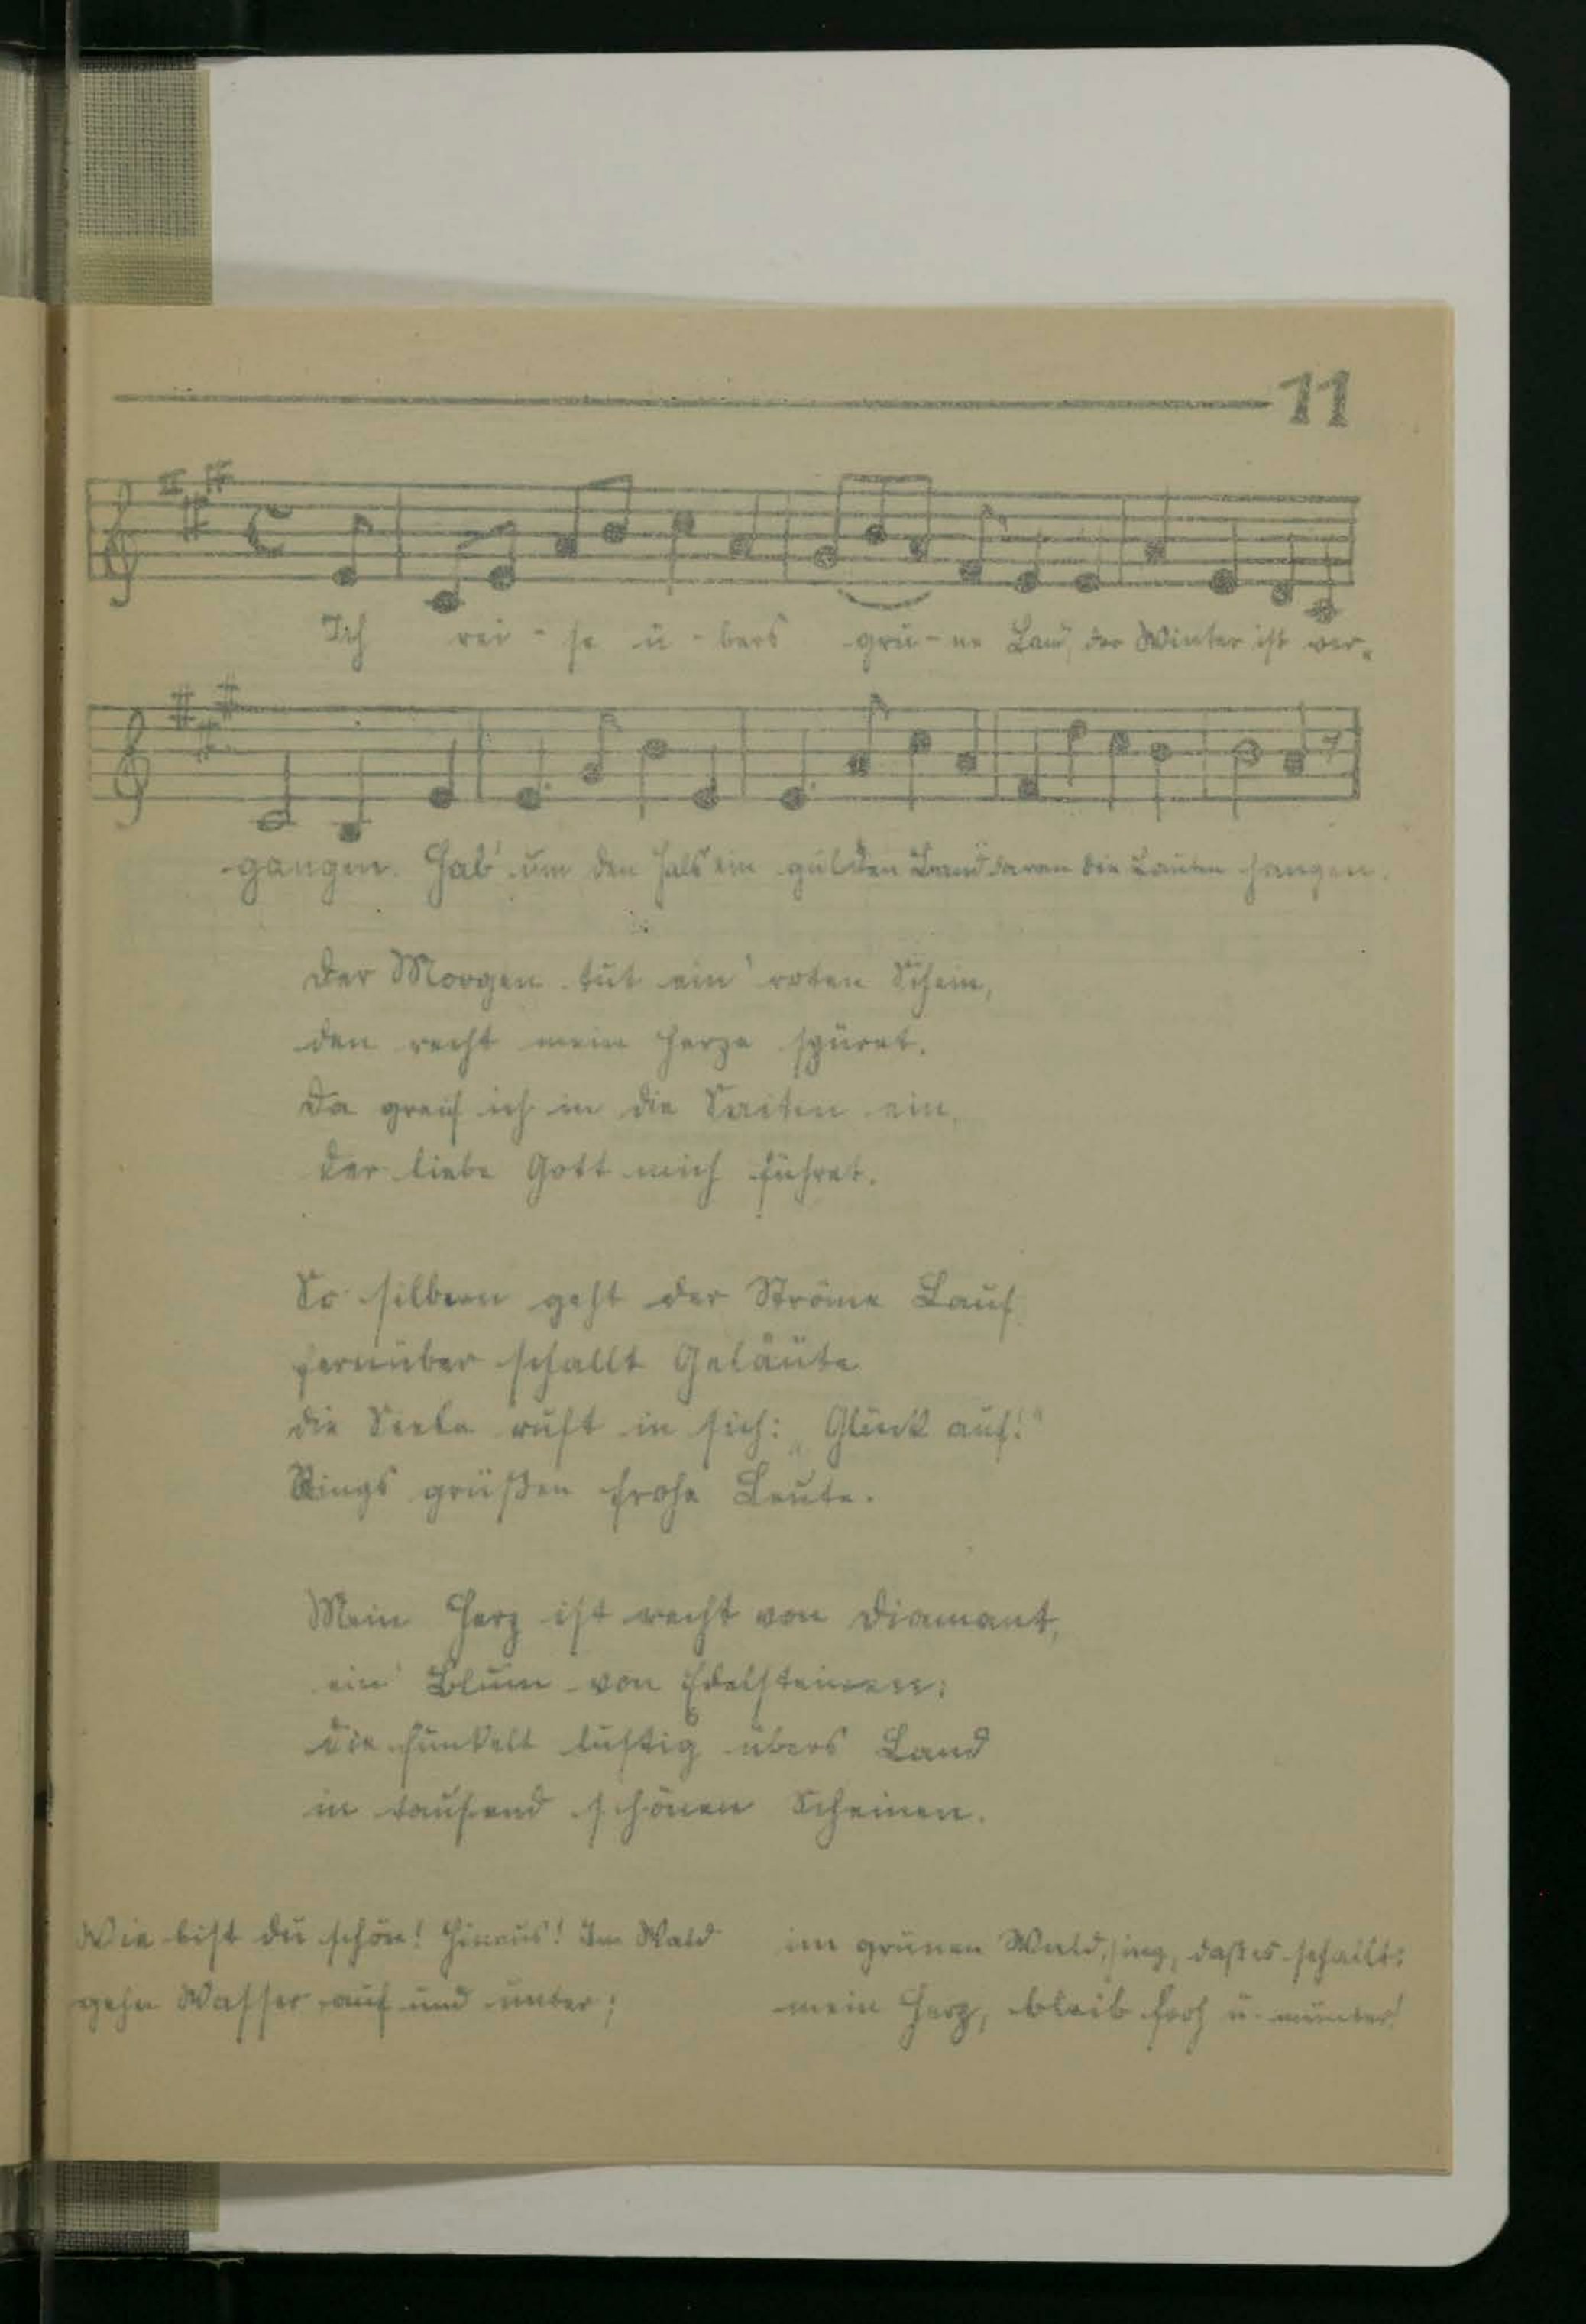 11
Ich rei - se ü - bers grü - ne Land, der Winter ist ver-
gangen. Hab' um den Hals ein gülden Band daran die Lauten hangen.
Der Morgen tut ein' roten Schein,
den recht mein Herze spüret.
Da greif ich in die Saiten ein,
der liebe Gott mich führet.
So silbern geht der Ströme Lauf
fernüber schallt Geläute
die Seele ruft in sich: „Glück auf!"
Rings grüßen frohe Leute.
Mein Herz ist recht von Diamant,
ein' Blum von Edelsteinen:
die funkelt lustig übers Land
in tausend schönen Scheinen.
Wie bist du schön! Hinaus! Im Wald
gehn Wasser auf und unter;
im grünen Wald, sing, daß es schallt:
mein Herz, bleib froh u. munter!